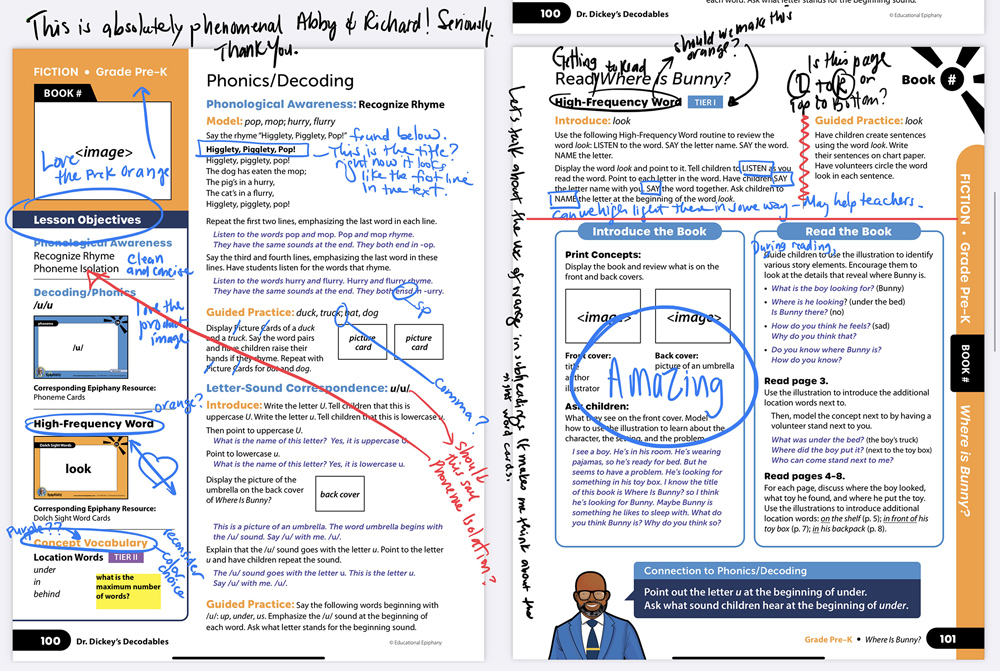 This is absolutely phenomenal Abby & Richard! Seriously.
Thank you.
FICTION • Grade Pre-K
BOOK #
<image>
Love
the Pre-K orange
Lesson Objectives
Phonological Awareness
Recognize Rhyme
Phoneme Isolation
Clean
and concise
Decoding/Phonics
/u/u
love the
product
image
phoneme
/u/
Corresponding Epiphany Resource:
Phoneme Cards
orange?
High-Frequency Word
Dolch Sight Words
look
Corresponding Epiphany Resource:
Dolch Sight Word Cards
Purple??
Concept Vocabulary
reconsider
color
choice
Location Words TIER II
under
in
behind
what is the
maximum number
of words?
100 Dr. Dickey's Decodables
Phonics/Decoding
Phonological Awareness: Recognize Rhyme
Model: pop, mop; hurry, flurry
Say the rhyme "Higglety, Pigglety, Pop!" found below.
Higglety, Pigglety, Pop!
This is the title?
right now it looks
like the first line
in the text.
Higglety, pigglety, pop!
The dog has eaten the mop;
The pig's in a hurry,
The cat's in a flurry,
Higglety, pigglety, pop!
Repeat the first two lines, emphasizing the last word in each line.
Listen to the words pop and mop. Pop and mop rhyme.
They have the same sounds at the end. They both end in -op.
Say the third and fourth lines, emphasizing the last word in these
lines. Have students listen for the words that rhyme.
Listen to the words hurry and flurry. Hurry and flurry rhyme.
They have the same sounds at the end. They both ensd in -urry.
sp
Guided Practice: duck, truck; bat, dog
Display Picture Cards of a duck
and a truck. Say the word pairs
and have children raise their
hands if they rhyme. Repeat with
Picture Cards for bat and dog.
picture
card
picture
card
Comma?
Letter-Sound Correspondence: u/u/
Introduce: Write the letter U. Tell children that this is
uppercase U. Write the letter u. Tell children that this is lowercase u.
Then point to uppercase U.
What is the name of this letter? Yes, it is uppercase U.
Point to lowercase u.
What is the name of this letter? Yes, it is lowercase u.
should
this say
Phoneme Isolation?
Display the picture of the
umbrella on the back cover
of Where Is Bunny?
back cover
This is a picture of an umbrella. The word umbrella begins with
the /u/ sound. Say /u/ with me. /u/.
Explain that the /u/ sound goes with the letter u. Point to the letter
u and have children repeat the sound.
The /u/ sound goes with the letter u. This is the letter u.
Say /u/ with me. /u/.
Guided Practice: Say the following words beginning with
/u/: up, under, us. Emphasize the /u/ sound at the beginning of
each word. Ask what letter stands for the beginning sound.
© Educational Epiphany
each word. Ask what letter stands for the beginning sound.
100 Dr. Dickey's Decodables
© Educational Epiphany
Let's talk about the use of orange in subheadings. It makes me think about the
sight word cards.
should we make this
orange?
Getting to Read
Ready Where Is Bunny?
Is this page
L to R or
Top to Bottom?
Book #
High-Frequency Word TIER I
Introduce: look
Use the following High-Frequency Word routine to review the
word look: LISTEN to the word. SAY the letter name. SAY the word.
NAME the letter.
Display the word look and point to it. Tell children to LISTEN as you
read the word. Point to each letter in the word. Have children SAY
the letter name with you. SAY the word together. Ask children to
NAME the letter at the beginning of the word look.
Can we highlight them in some way - May help teachers.
Guided Practice: look
Have children create sentences
using the word look. Write
their sentences on chart paper.
Have volunteers circle the word
look in each sentence.
Introduce the Book
Print Concepts:
Display the book and review what is on the
front and back covers.
<image>
<image>
Front cover:
title
author
illustrator
Back cover:
picture of an umbrella
Amazing
Ask children:
What they see on the front cover. Model
how to use the illustration to learn about the
character, the setting, and the problem.
I see a boy. He's in his room. He's wearing
pajamas, so he's ready for bed. But he
seems to have a problem. He's looking for
something in his toy box. I know the title
of this book is Where Is Bunny? so I think
he's looking for Bunny. Maybe Bunny is
something he likes to sleep with. What do
you think Bunny is? Why do you think so?
Read the Book
During reading,
Guide children to use the illustration to identify
various story elements. Encourage them to
look at the details that reveal where Bunny is.
• What is the boy looking for? (Bunny)
• Where is he looking? (under the bed)
Is Bunny there? (no)
• How do you think he feels? (sad)
Why do you think that?
• Do you know where Bunny is?
How do you know?
Read page 3.
Use the illustration to introduce the additional
location words next to.
Then, model the concept next to by having a
volunteer stand next to you.
What was under the bed? (the boy's truck)
Where did the boy put it? (next to the toy box)
Who can come stand next to me?
Read pages 4–8.
For each page, discuss where the boy looked,
what toy he found, and where he put the toy.
Use the illustrations to introduce additional
location words: on the shelf (p. 5); in front of his
toy box (p. 7); in his backpack (p. 8).
Connection to Phonics/Decoding
Point out the letter u at the beginning of under.
Ask what sound children hear at the beginning of under.
Grade Pre–K • Where Is Bunny? 101
FICTION • Grade Pre–K
BOOK #
Where is Bunny?